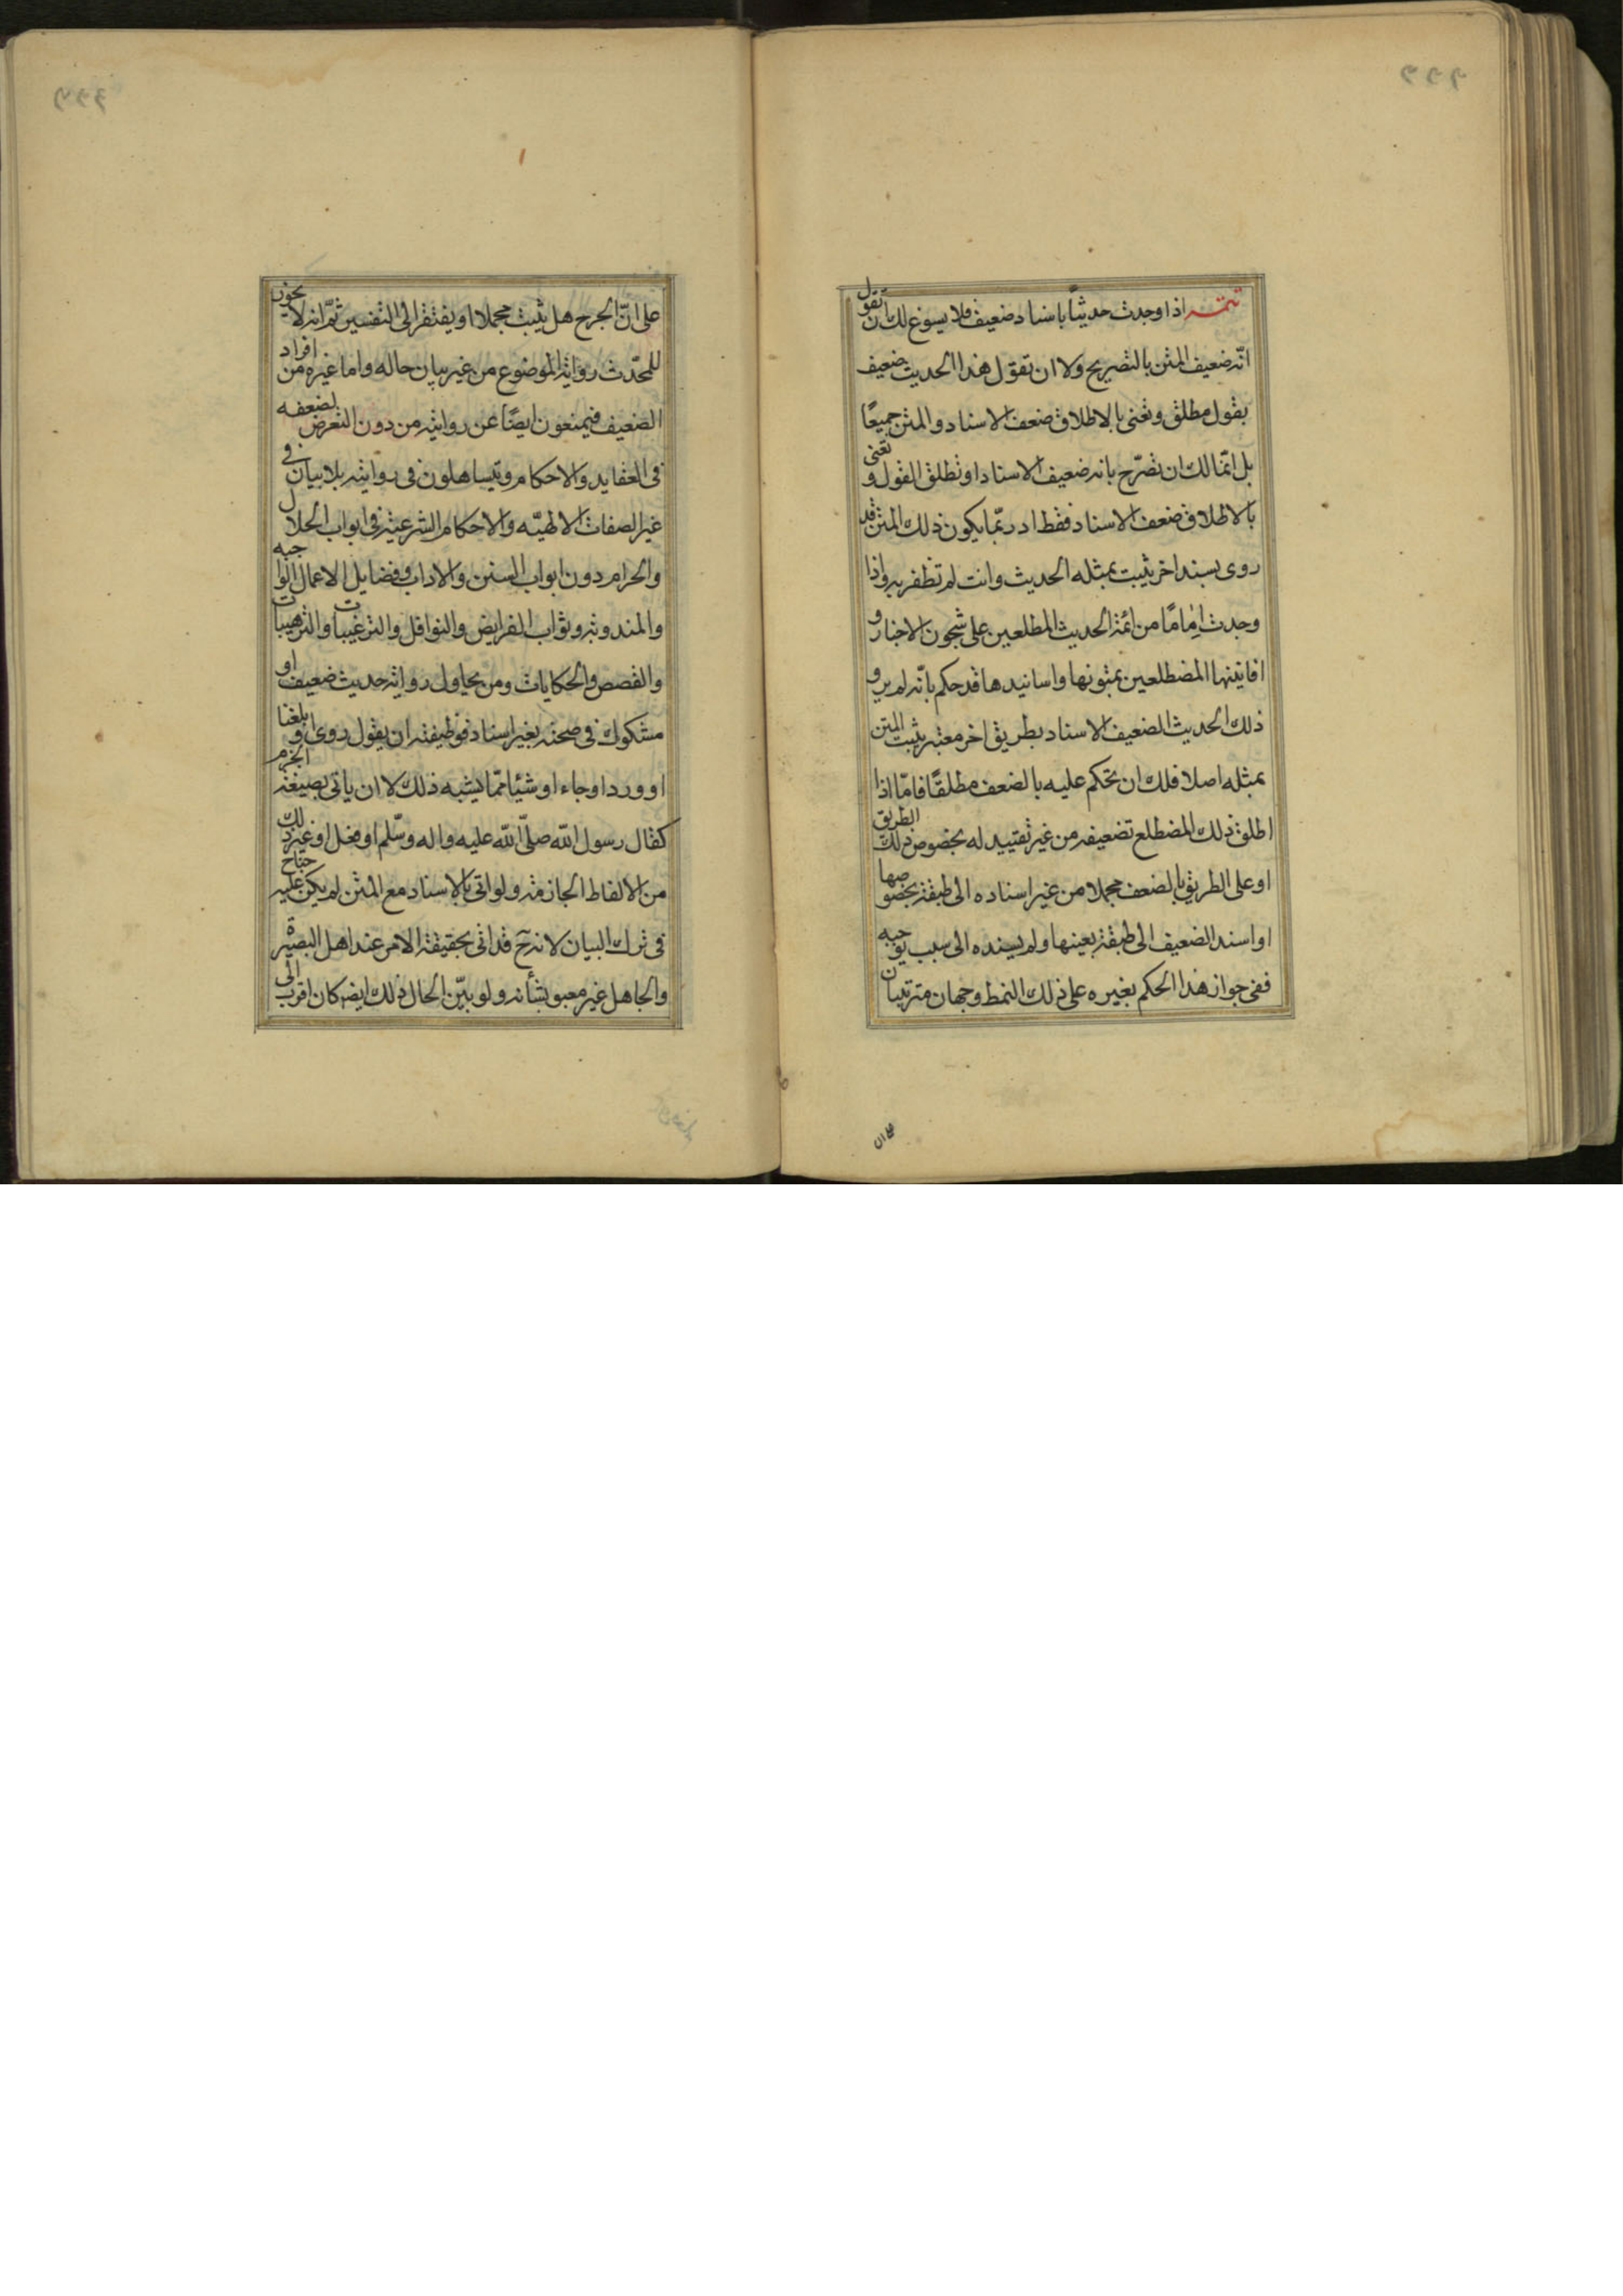 تتمة اذا وجدت حديثاً باسناد ضعيف فلا يسوغ لك ان تقول
انّه ضعيف المتن بالتصريح ولا ان تقول هذا الحديث ضعيف
بقول مطلق وتعنى بالاطلاق ضعف الاسناد والمتن جميعًا
بل انّما لك ان تصّرح بانه ضعيف الاسناد او تطلق القول و تعنى
بالاطلاق ضعف الاسناد فقط اذ ربّما يكون ذلك المتن قد
روى بسند اخر يثبت بمثله الحديث وانت لم تظفر به واذا
وجدت اِمامًا من ائمة الحديث المطلعين على شجون الاخبار و
افانينها المضطلعين بمتونها واسانيدها قد حكم بانّه لم يرو
ذلك الحديث الضعيف الاسناد بطريق اخر معتبر يثبت المتن
بمثله اصلا فلك ان تحكم عليه بالضعف مطلقًا فامّا اذا
اطلق ذلك المضطلع تضعيفه من غير تقييد له بخصوص ذلك الطريق
او على الطريق بالضعف مجملا من غير اسناده الى طبقة بخصوصها
او اسند الضعيف الى طبقة بعينها ولم يسنده الى سبب يوجبه
ففى جواز هذا الحكم بغيره على ذلك النمط وجهان مترتبان
على انّ الجرح هل يثبت مجملا او يفتقر الى التفسير ثمّ انه لا يجوز
للمحّدث رواية الموضوع من غير بيان حاله واما غيره من افراد
الضعيف فيمنعون ايضًا عن روايته من دون التعرض لضعفه
فى العقايد والاحكام ويتساهلون فى روايته بلا بيان فى
غير الصفات الالهيّه والاحكام الشرعية فى ابواب الحلال
والحرام دون ابواب السنن والاداب وفضايل الاعمال الواجبه
والمندوبة وثواب الفرايض والنوافل والترغيبات والترهيبات
والقصص والحكايات ومن يحاول رواية حديث ضعيف او
مشكوك فى صحته بغير اسناد فوظيفته ان يقول روى او بلغنا
او ورد او جاء او شيئا ممّا يشبه ذلك لا ان ياتى بصيغة الجزم
كقال رسول الله صلّى الله عليه واله وسّلم او فعل او غير ذلك
من الالفاظ الجازمة ولو اتى بالاسناد مع المتن لم يكن عليه جناح
فى ترك البيان لانه ح قد اتى بحقيقة الامر عند اهل البصيرة
والجاهل غير معبو بشأنه ولو بيّن الحال ذلك ايضا كان اقرب الى